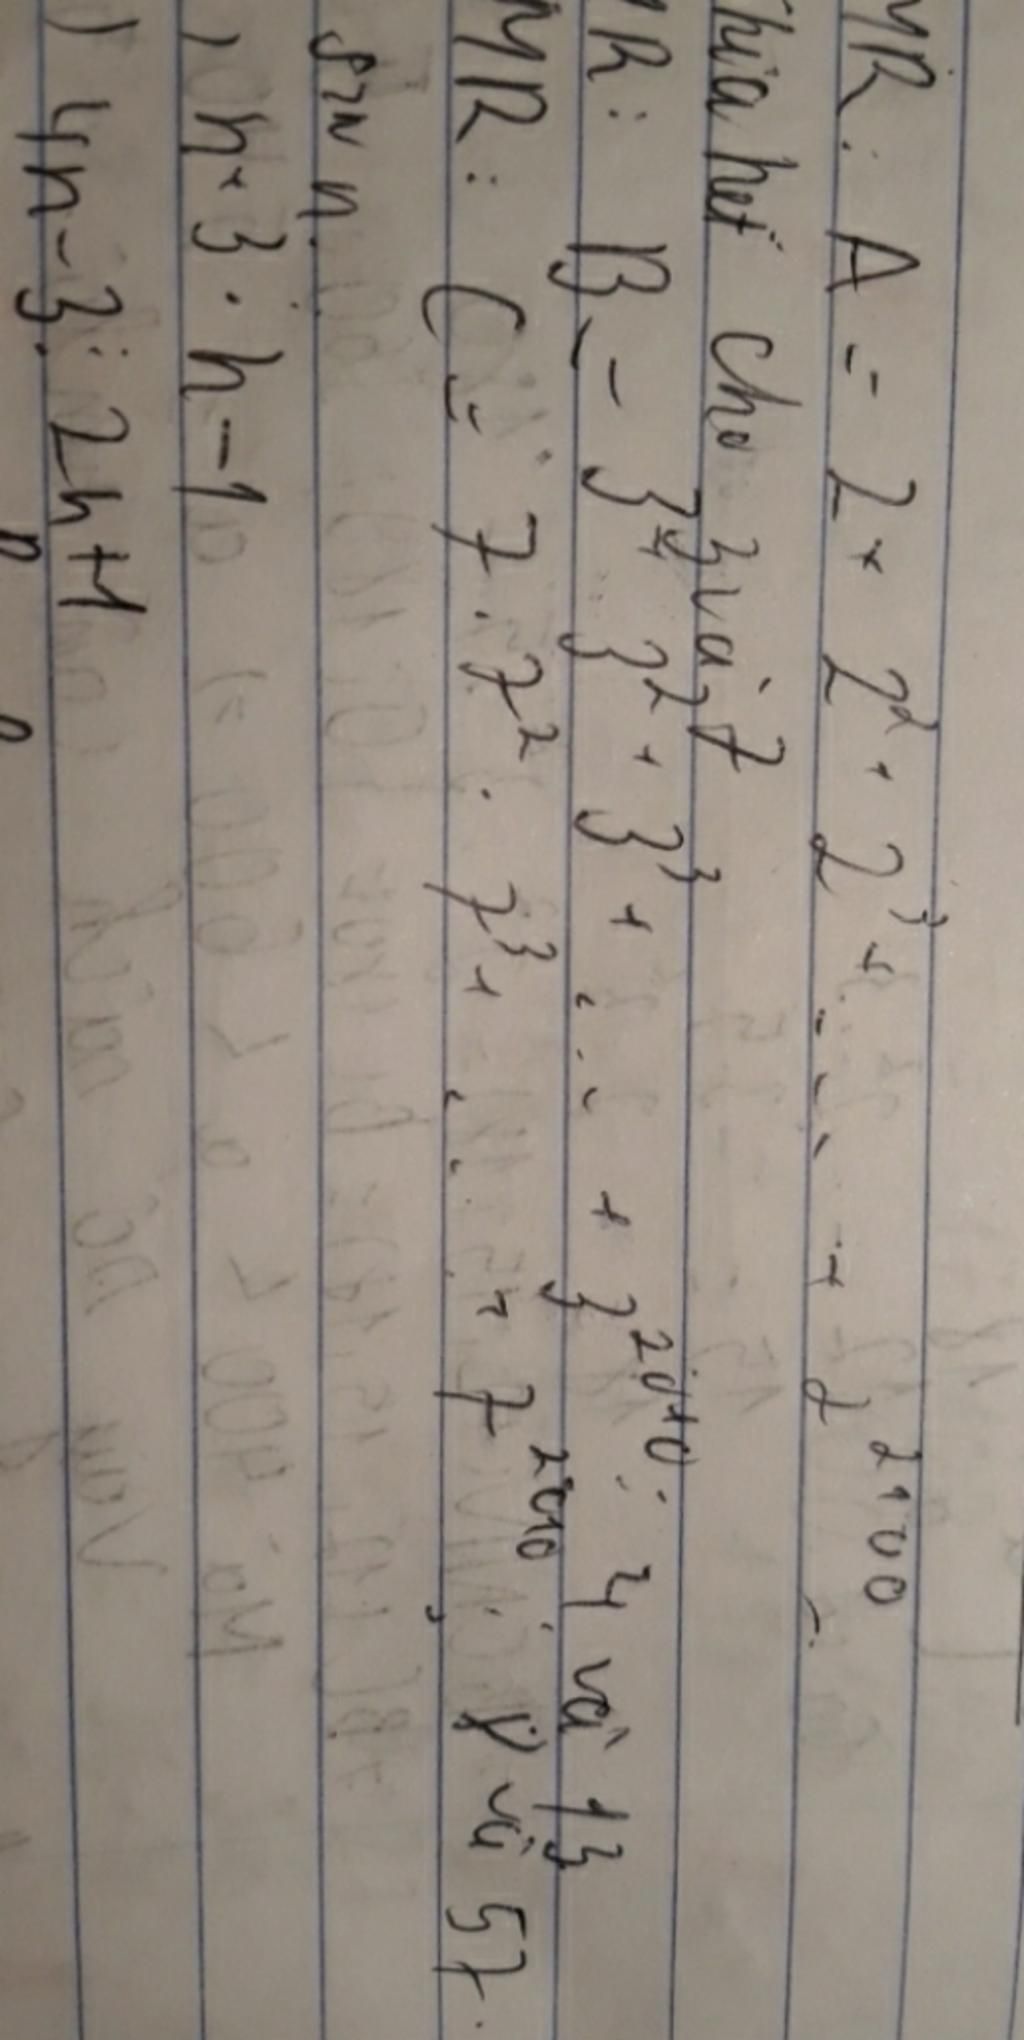 MR: A = 2 + 2² + 2³ + .... + 2²¹⁰⁰
chia hết cho 3 và 7
MR: B = 3 + 3² + 3³ + ... + 3²⁰¹⁰ ⋮ 4 và 13
MR: C = 7 + 7² + 7³ + ... + 7²⁰¹⁰ ⋮ 8 và 57.
n.
) n + 3 ⋮ n - 1
) 4n - 3 ⋮ 2n + 1